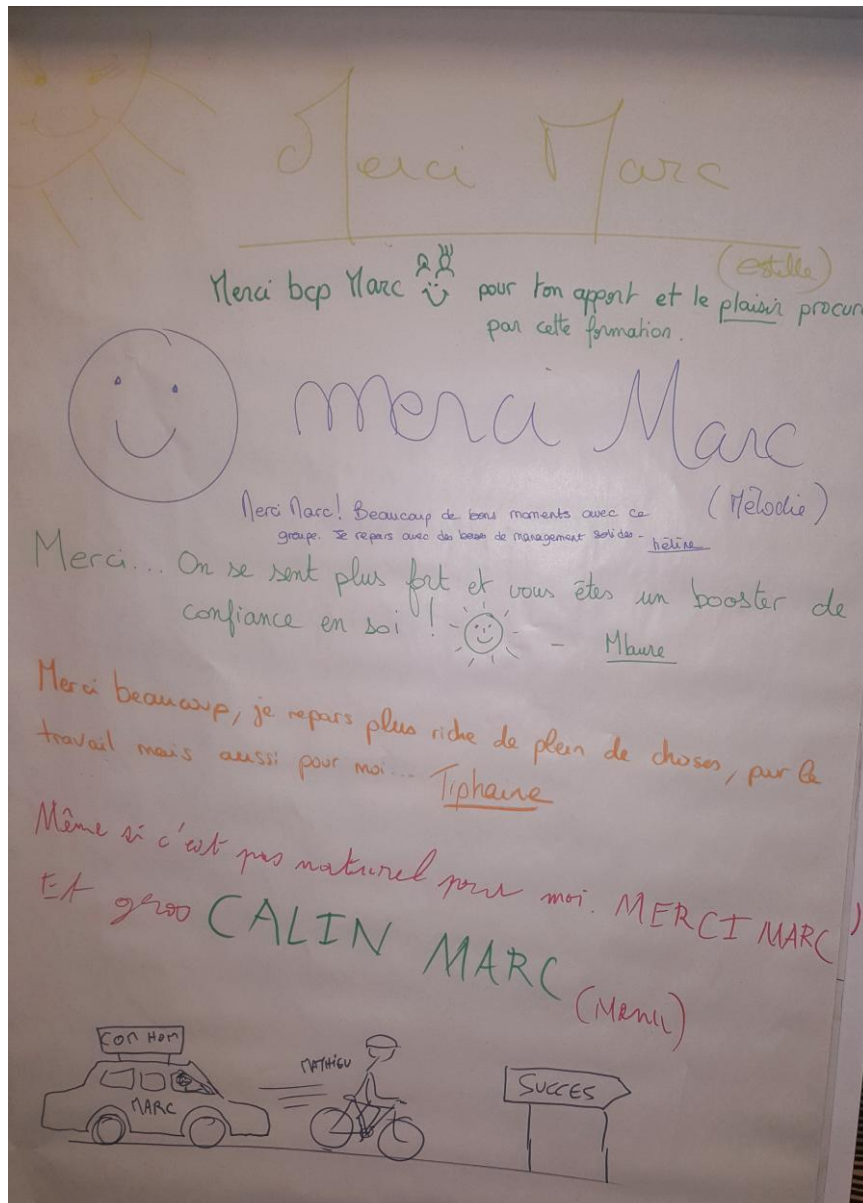 Merci Marc
(Estelle)
Merci bcp Marc pour ton apport et le plaisir procur
par cette formation.
merci Marc
(Mélodie)
Merci Marc! Beaucoup de bons moments avec ce
groupe. Je repars avec des bases de management solides -
Merci... On se sent plus fort et vous êtes un booster de
confiance en soi ! - Mlaure
Merci beaucoup, je repars plus riche de plein de choses, pour le
travail mais aussi pour moi... Tiphaine
Même si c'est pas naturel pour moi. MERCI MARC
Et gros CALIN MARC
COM HOM
MARC
MATHIEU
SUCCES